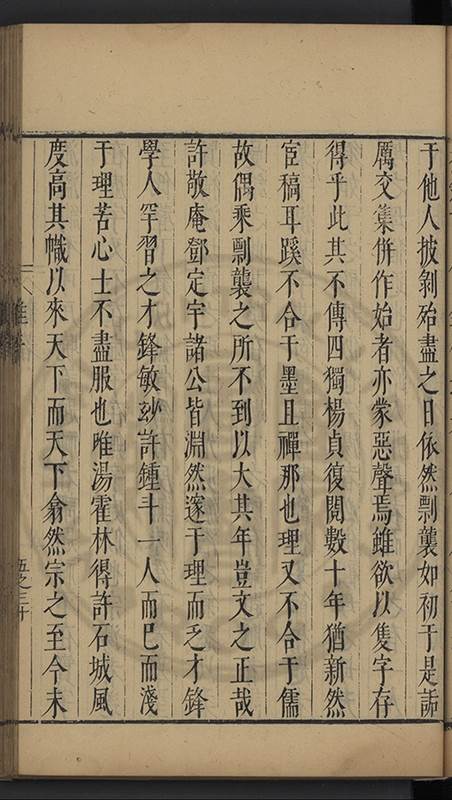 于他人披剝殆盡之日依然剽襲如初于是詬
厲交集併作始者亦蒙惡聲焉雖欲以隻字存
得乎此其不傳四獨楊貞復閱數十年猶新然
宦稿耳蹊不合于墨且禪那也理又不合于儒
故偶乘剽襲之所不到以大其年豈文之正哉
許敬庵鄧定宇諸公皆淵然邃于理而乏才鋒
學人罕習之才鋒敏玅許鍾斗一人而巳而淺
于理苦心士不盡服也唯湯霍林得許石城風
度高其幟以來天下而天下翕然宗之至今未